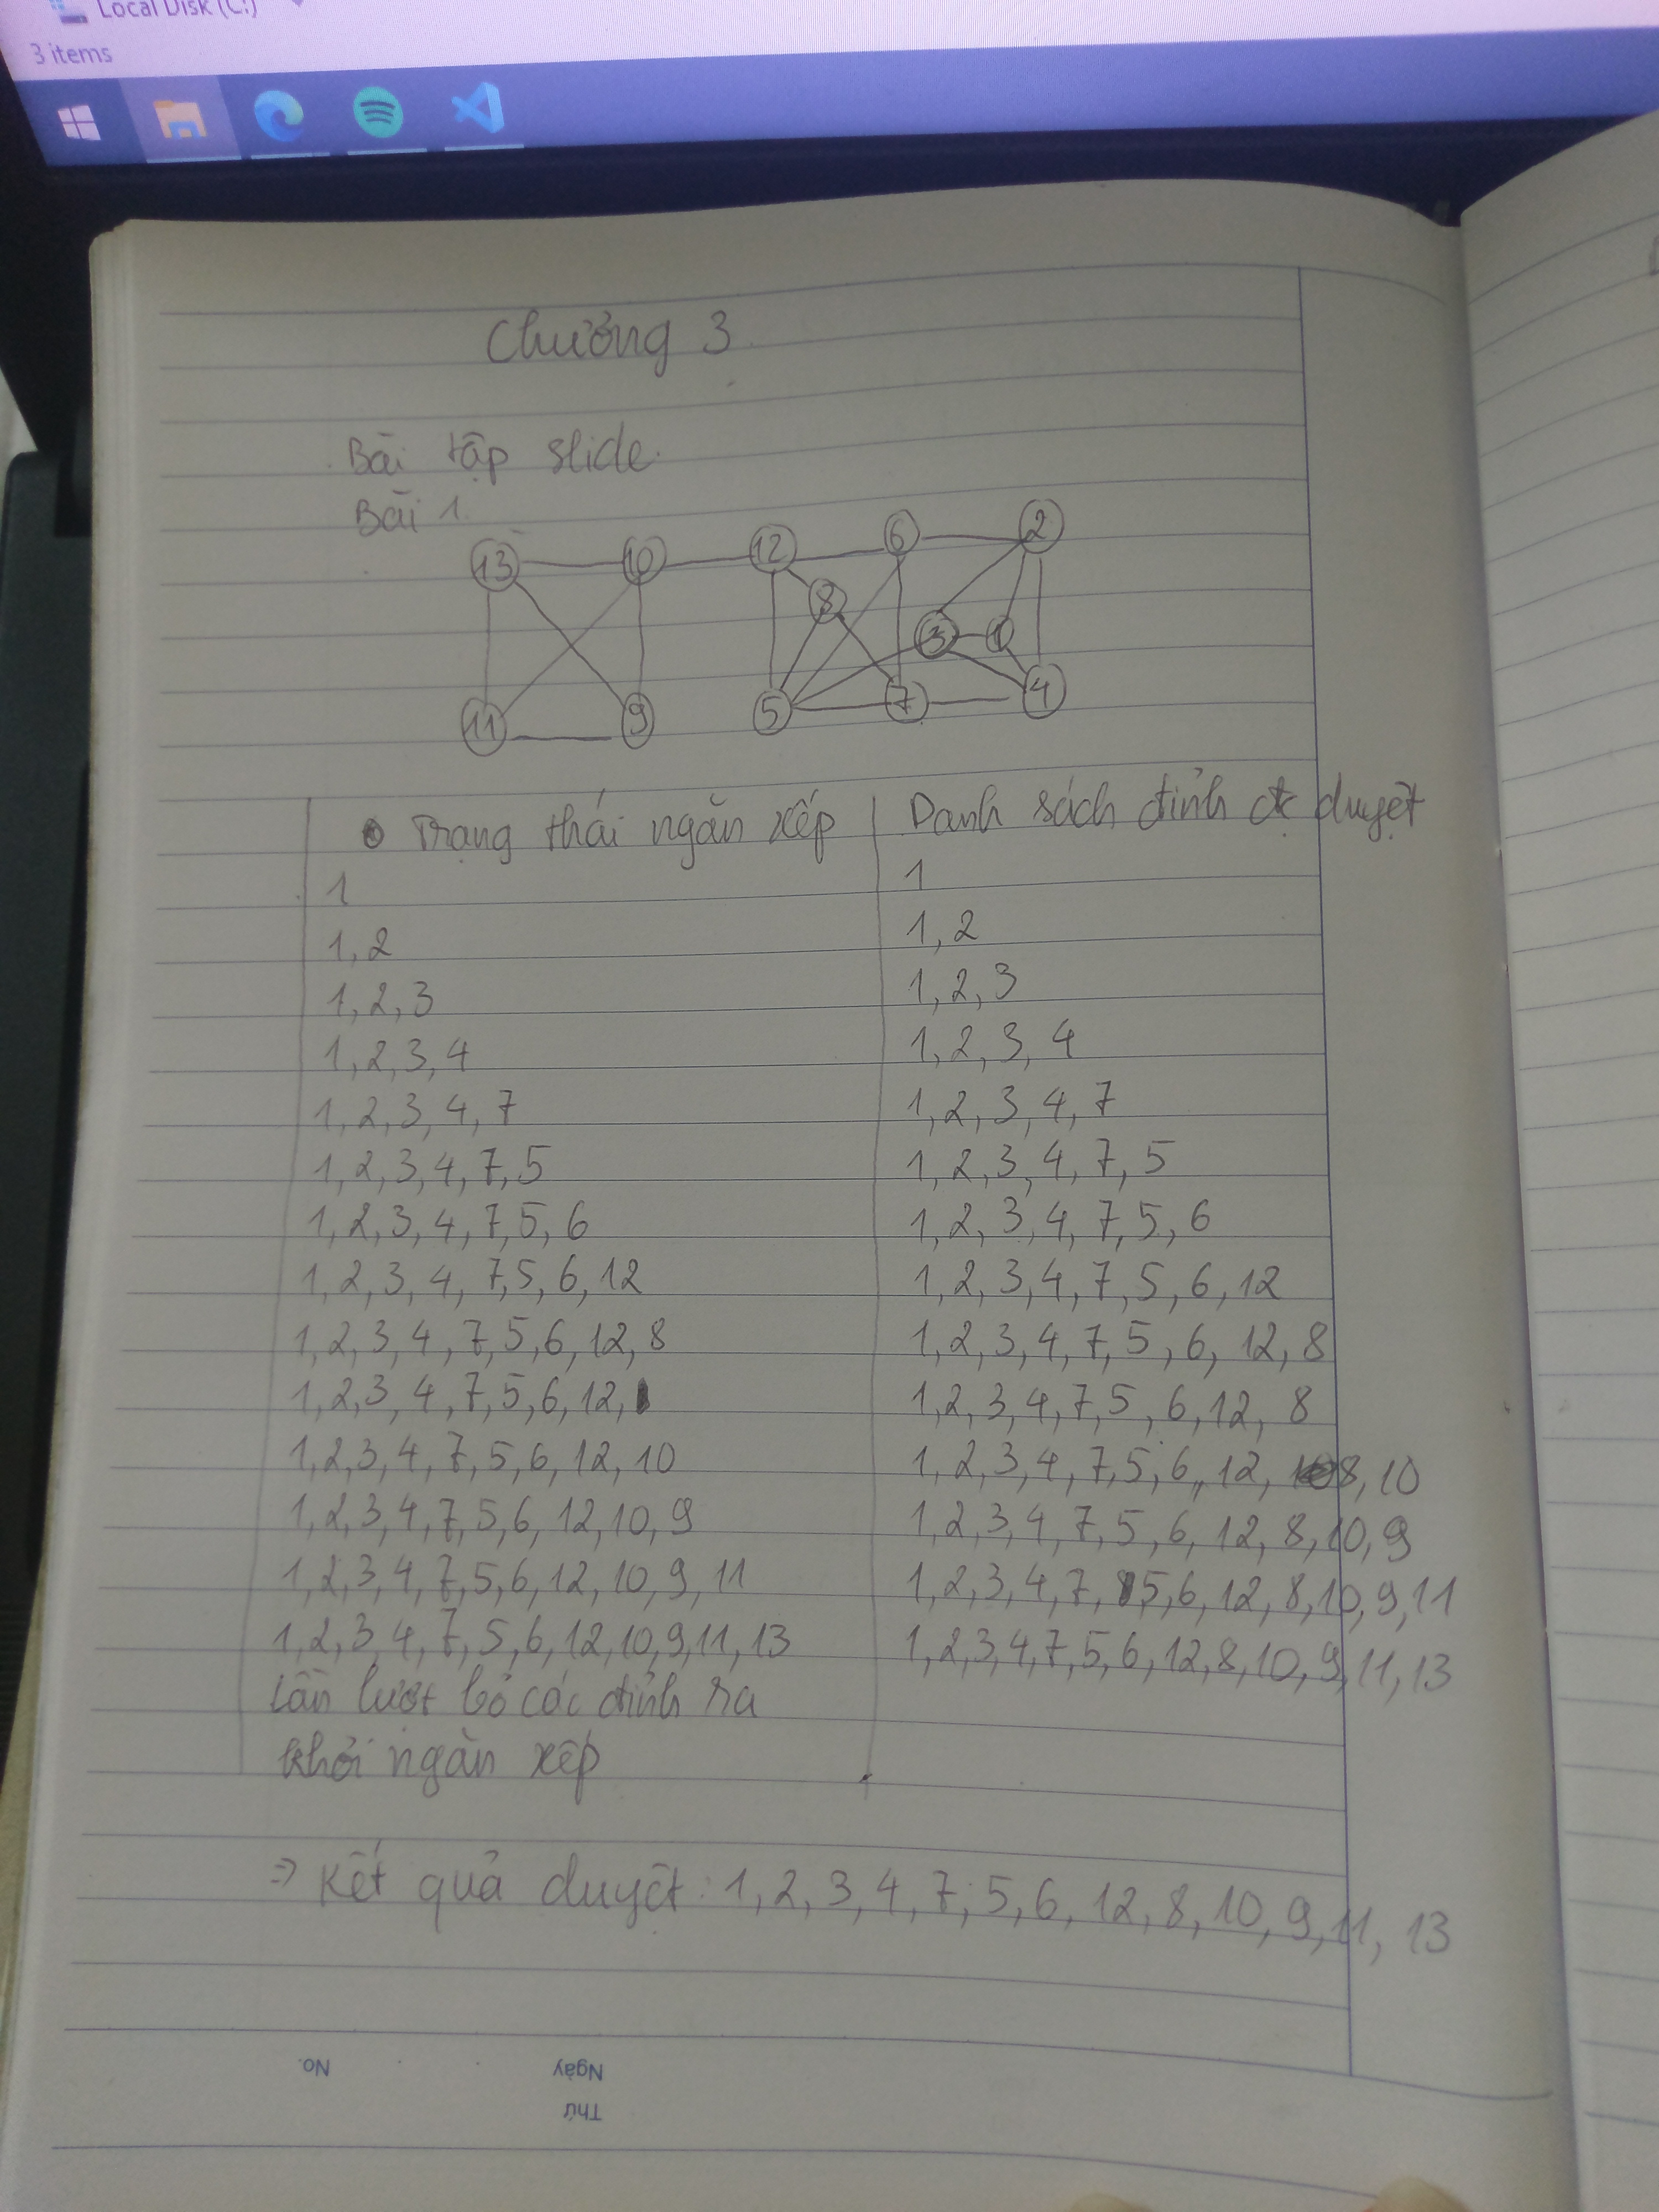 Local Disk (C:)
3 items
Chương 3.
Bài tập slide.
Bài 1.
13 10 12 6 2
8
3 1
11 9 5 7 4
Trạng thái ngăn xếp Danh sách đỉnh đc duyệt
1 1
1, 2 1, 2
1, 2, 3 1, 2, 3
1, 2, 3, 4 1, 2, 3, 4
1, 2, 3, 4, 7 1, 2, 3, 4, 7
1, 2, 3, 4, 7, 5 1, 2, 3, 4, 7, 5
1, 2, 3, 4, 7, 5, 6 1, 2, 3, 4, 7, 5, 6
1, 2, 3, 4, 7, 5, 6, 12 1, 2, 3, 4, 7, 5, 6, 12
1, 2, 3, 4, 7, 5, 6, 12, 8 1, 2, 3, 4, 7, 5, 6, 12, 8
1, 2, 3, 4, 7, 5, 6, 12, 1, 2, 3, 4, 7, 5, 6, 12, 8
1, 2, 3, 4, 7, 5, 6, 12, 10 1, 2, 3, 4, 7, 5, 6, 12, 8, 10
1, 2, 3, 4, 7, 5, 6, 12, 10, 9 1, 2, 3, 4, 7, 5, 6, 12, 8, 10, 9
1, 2, 3, 4, 7, 5, 6, 12, 10, 9, 11 1, 2, 3, 4, 7, 5, 6, 12, 8, 10, 9, 11
1, 2, 3, 4, 7, 5, 6, 12, 10, 9, 11, 13 1, 2, 3, 4, 7, 5, 6, 12, 8, 10, 9, 11, 13
Lần lượt bỏ các đỉnh ra
khỏi ngăn xếp
⇒ Kết quả duyệt: 1, 2, 3, 4, 7, 5, 6, 12, 8, 10, 9, 11, 13
No. Ngày
Thứ